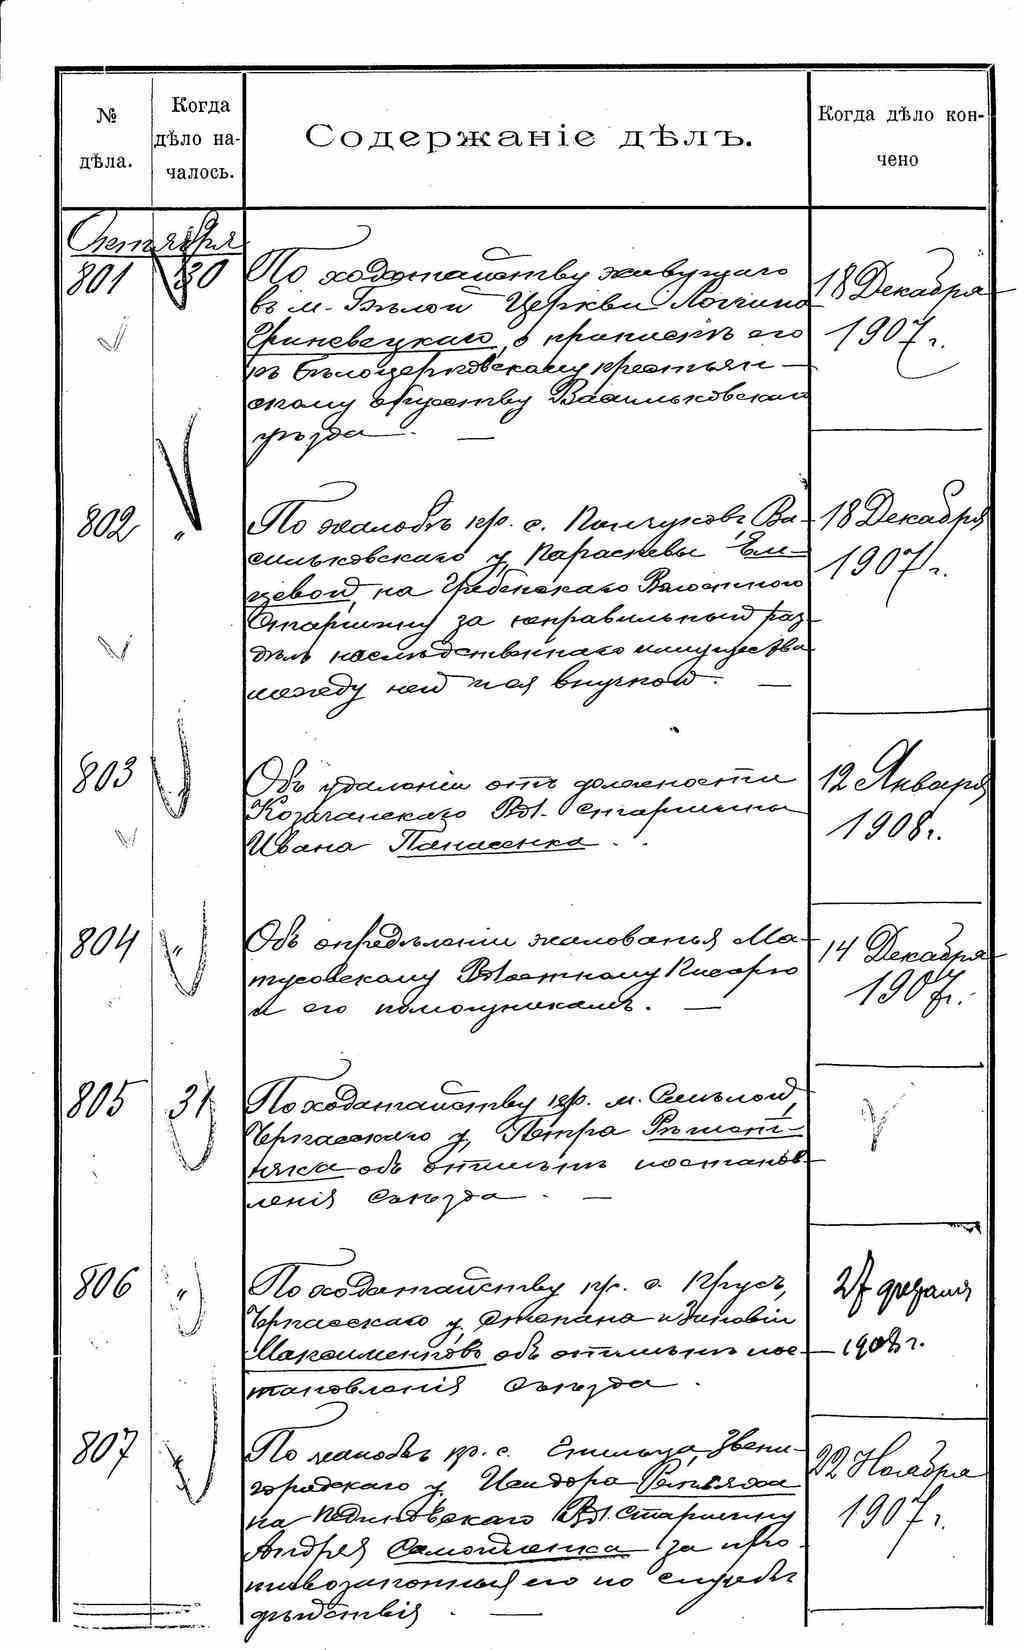 №
дѣла.
Когда
дѣло на-
чалось.
Содержаніе дѣлъ.
Когда дѣло кон-
чено
Октября
801 30 По ходатайству живущаго
въ м. Бѣлой Церкви
Гриневецкаго о припискѣ его
къ Бѣлоцерковскому крестьян-
скому обществу Васильковскаго
уѣзда. —
18 Декабря
1907 г.
802 " По жалобѣ кр. с. Пинчуковъ, Ва-
сильковскаго у. Параскевы Ем-
цевой, на Гребенскаго Волостного
Старшину за неправильный раз-
дѣлъ наслѣдственнаго имущества
между ней и ея внучкой. —
18 Декабря
1907 г.
803 " Объ удаленіи отъ должности
Козачанскаго Вол. старшины
Ивана Панасенка.
12 Января
1908 г.
804 " Объ опредѣленіи жалованья Ма-
тусовскому Волостному Писарю
и его помощникамъ. —
14 Декабря
1907 г.
805 31 По ходатайству кр. м. Смѣлой,
Черкасскаго у. Петра Рѣшет-
няка объ отмѣнѣ постанов-
ленія Съѣзда. —
806 " По ходатайству кр. с.
Черкасскаго у. Степана и Зиновіи
Максименковъ объ отмѣнѣ пос-
тановленія Съѣзда.
27 февраля
1908 г.
807 " По жалобѣ кр. с. Звени-
городскаго у. Исидора Репьяха
на Вол. Старшину
Андрея Самойленка за про-
тивозаконныя его по службѣ
дѣйствія. —
22 Ноября
1907 г.